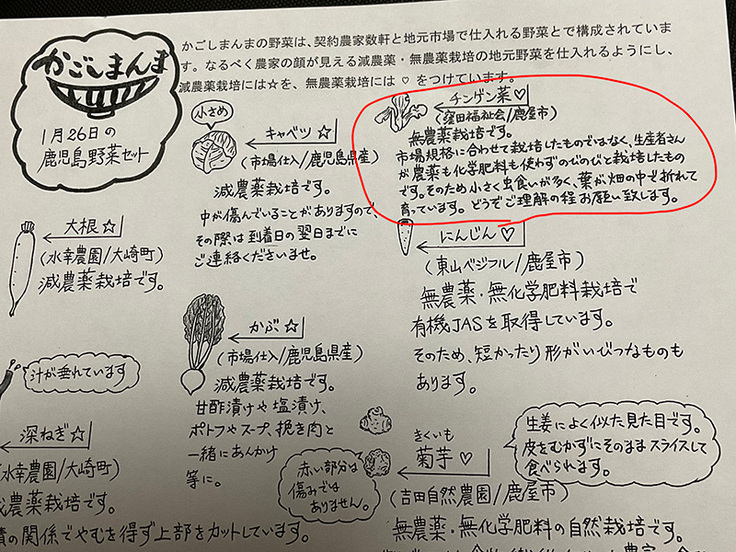 かごしまんまの野菜は、契約農家数軒と地元市場で仕入れる野菜とで構成されていま
す。なるべく農家の顔が見える減農薬・無農薬栽培の地元野菜を仕入れるようにし、
減農薬栽培には☆を、無農薬栽培には♡をつけています。
かごしまんま
1月26日の
鹿児島野菜セット
小さめ
キャベツ☆
(市場仕入/鹿児島県産)
減農薬栽培です。
中が傷んでいることがありますので、
その際は到着日の翌日までに
ご連絡くださいませ。
チンゲン菜♡
(窪田福祉会/鹿屋市)
無農薬栽培です。
市場規格に合わせて栽培したものではなく、生産者さん
が農薬も化学肥料も使わずのびのびと栽培したもの
です。そのため小さく虫食いが多く、葉が畑の中で折れて
育っています。どうぞご理解の程お願い致します。
大根☆
(水幸農園/大崎町)
減農薬栽培です。
にんじん♡
(東山ベジフル/鹿屋市)
無農薬・無化学肥料栽培で
有機JASを取得しています。
そのため、短かったり形がいびつなものも
あります。
かぶ☆
(市場仕入/鹿児島県産)
減農薬栽培です。
甘酢漬けや塩漬け、
ポトフやスープ、挽き肉と
一緒にあんかけ
等に。
汁が垂れています
深ねぎ☆
(水幸農園/大崎町)
減農薬栽培です。
の関係でやむを得ず上部をカットしています。
赤い部分は
傷みでは
ありません。
きくいも
菊芋♡
(吉田自然農園/鹿屋市)
無農薬・無化学肥料の自然栽培です。
生姜によく似た見た目です。
皮をむかずにそのままスライスして
食べられます。